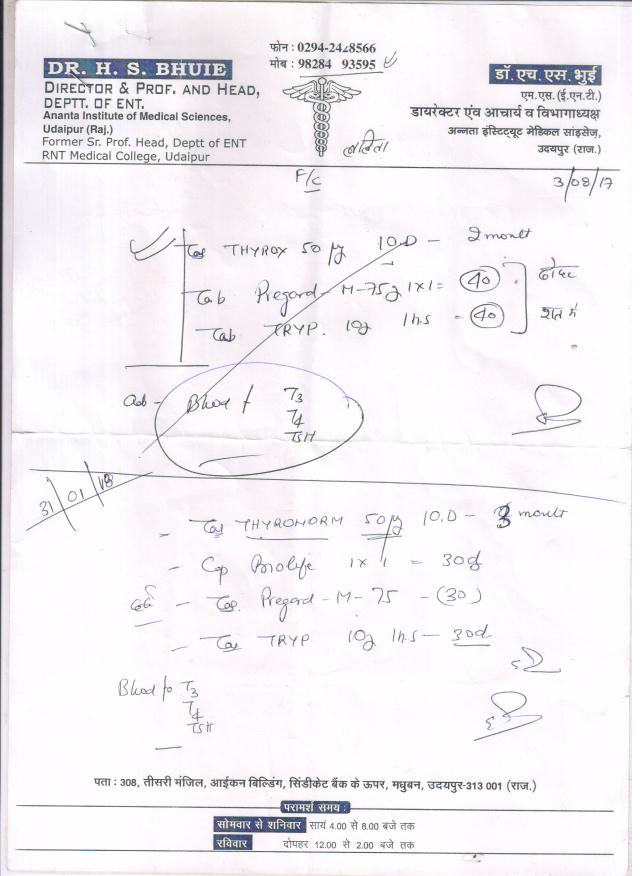 फोन : 0294-2428566
मोब : 98284 93595
DR. H. S. BHUIE
DIRECTOR & PROF. AND HEAD,
DEPTT. OF ENT.
Ananta Institute of Medical Sciences,
Udaipur (Raj.)
Former Sr. Prof. Head, Deptt of ENT
RNT Medical College, Udaipur
डॉ. एच. एस. भुई
एम.एस. (ई.एन.टी.)
डायरेक्टर एंव आचार्य व विभागाध्यक्ष
अन्नता इंस्टिट्यूट मेडिकल सांइसेज,
उदयपुर (राज.)
ललिता
F/c
3/08/17
THYROX 50 μg 1O.D - 2 month
Tab Pregard-M-75g 1x1 = 40
Tab TRYP. 10g 1hs = 40
रात में
Adv - Blood f T3
T4
TSH
31/01/18
THYRONORM 50μg 1O.D - 3 month
Cap 1x1 = 30d
Pregard-M-75 - (30)
TRYP 10g 1hs - 30d
Blood for T3
T4
TSH
पता : 308, तीसरी मंजिल, आईकन बिल्डिंग, सिंडीकेट बैंक के ऊपर, मधुबन, उदयपुर-313 001 (राज.)
परामर्श समय :
सोमवार से शनिवार सायं 4.00 से 8.00 बजे तक
रविवार दोपहर 12.00 से 2.00 बजे तक